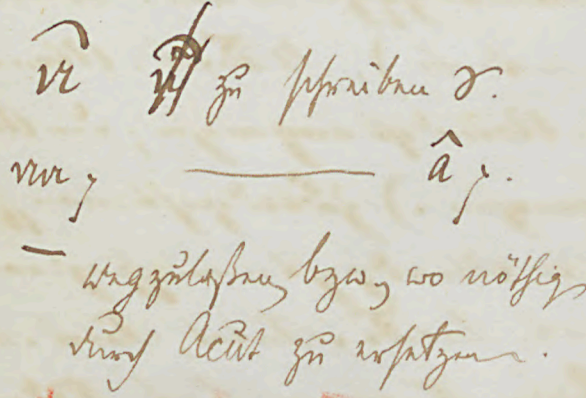 zu schreiben
— â
— wegzulaßen, bzw., wo nöthig,
durch Acut zu ersetzen.